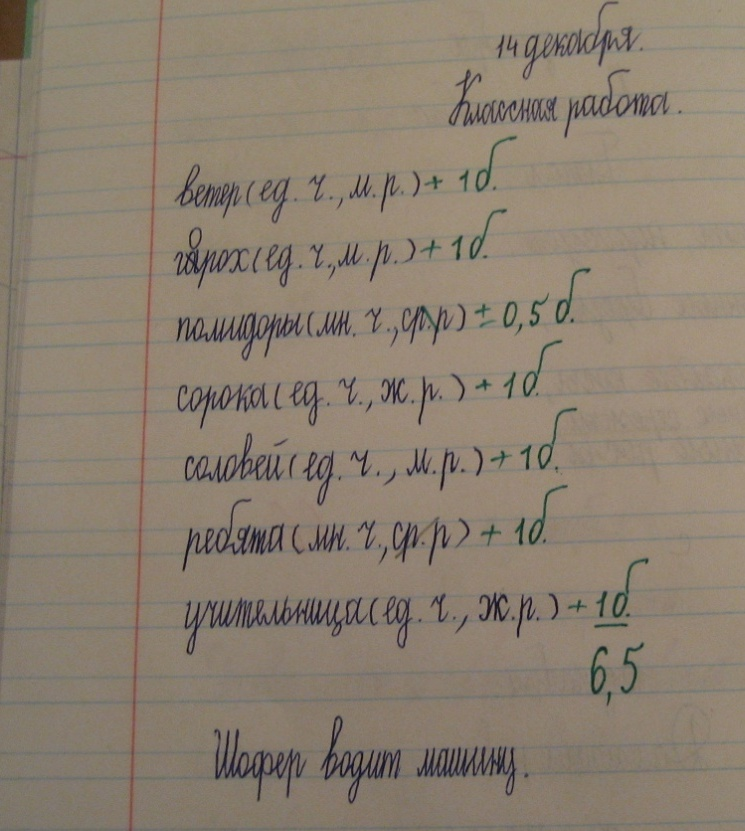 14 декабря.
Классная работа.
ветер (ед. ч., м. р.) + 1б.
горох (ед. ч., м. р.) + 1б.
помидоры (мн. ч., ср. р) ± 0,5 б.
сорока (ед. ч., ж. р.) + 1б.
соловей (ед. ч., м. р.) + 1б.
ребята (мн. ч., ср. р) + 1б.
учительница (ед. ч., ж. р.) + 1б.
6,5
Шофер водит машину.